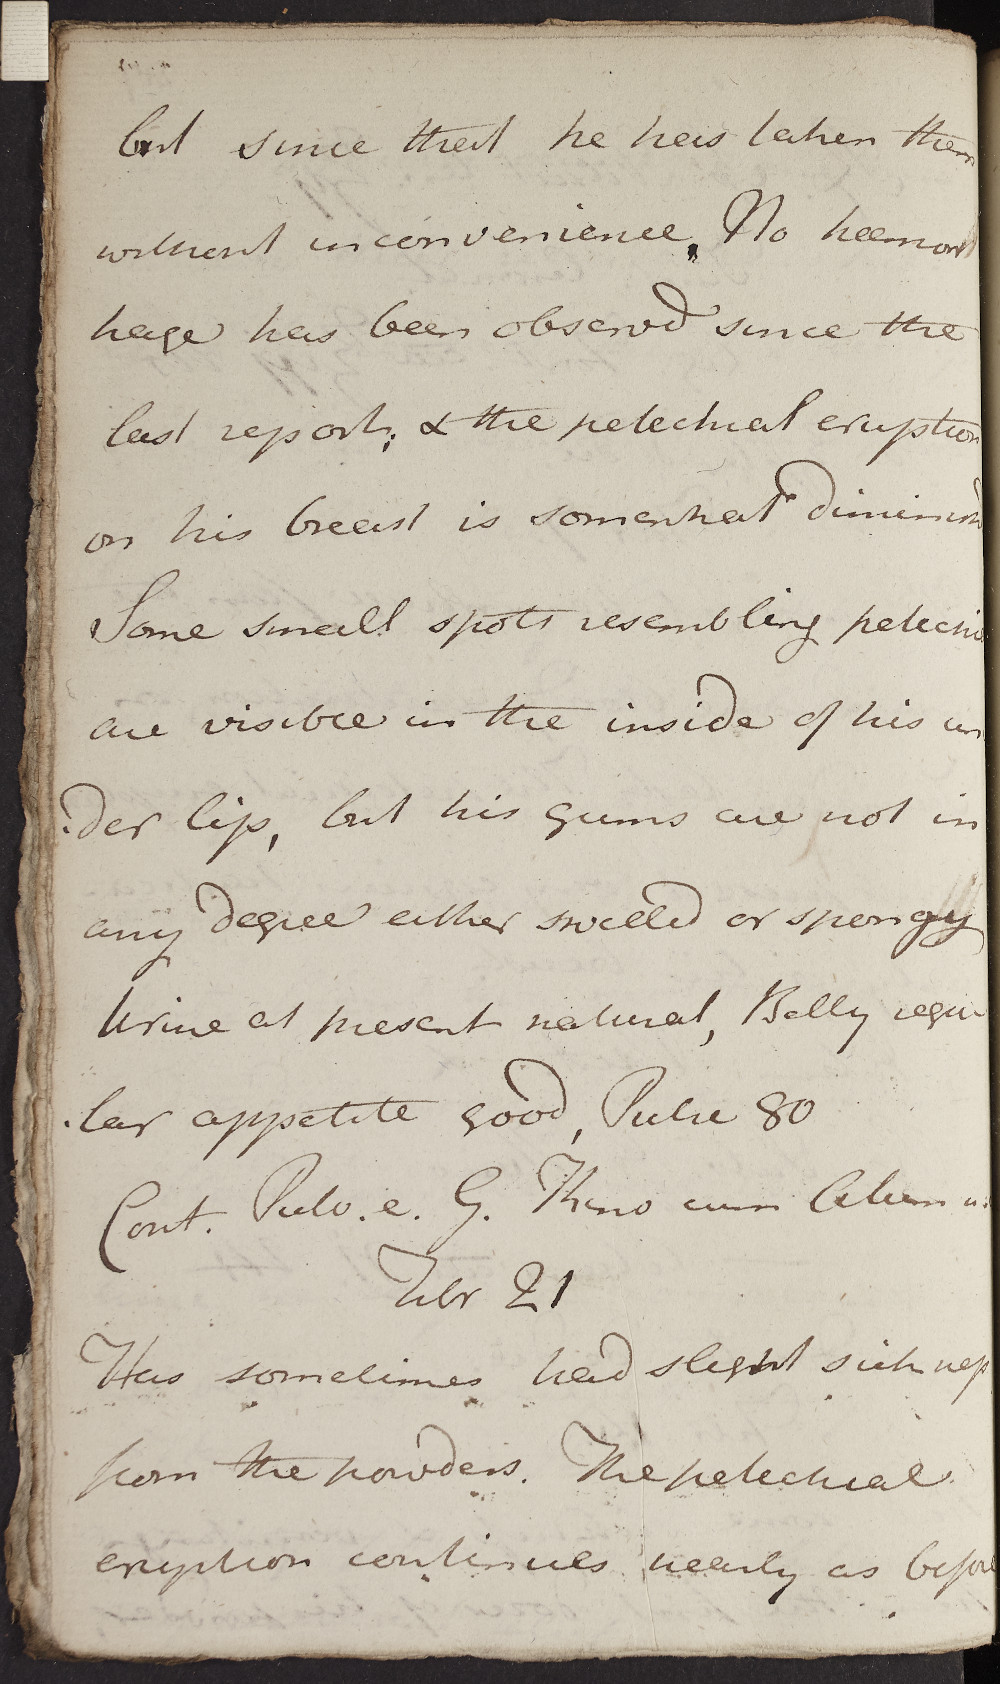 but since that he has taken them
without inconvenience, No haemorr
hage has been observd since the
last report; & the petechial eruption
on his breast is somewhat diminishd
Some small spots resembling petechiae
are visible in the inside of his un
:der lip, but his gums are not in
any degree either swelled or spongy
Urine at present natural, Belly regu
:lar appetite good, Pulse 80
Cont. Pulv. e. G. Kino cum Alum
Febr 21
Has sometimes had slight sickness
from the powders. The petechial
eruption continues nearly as before